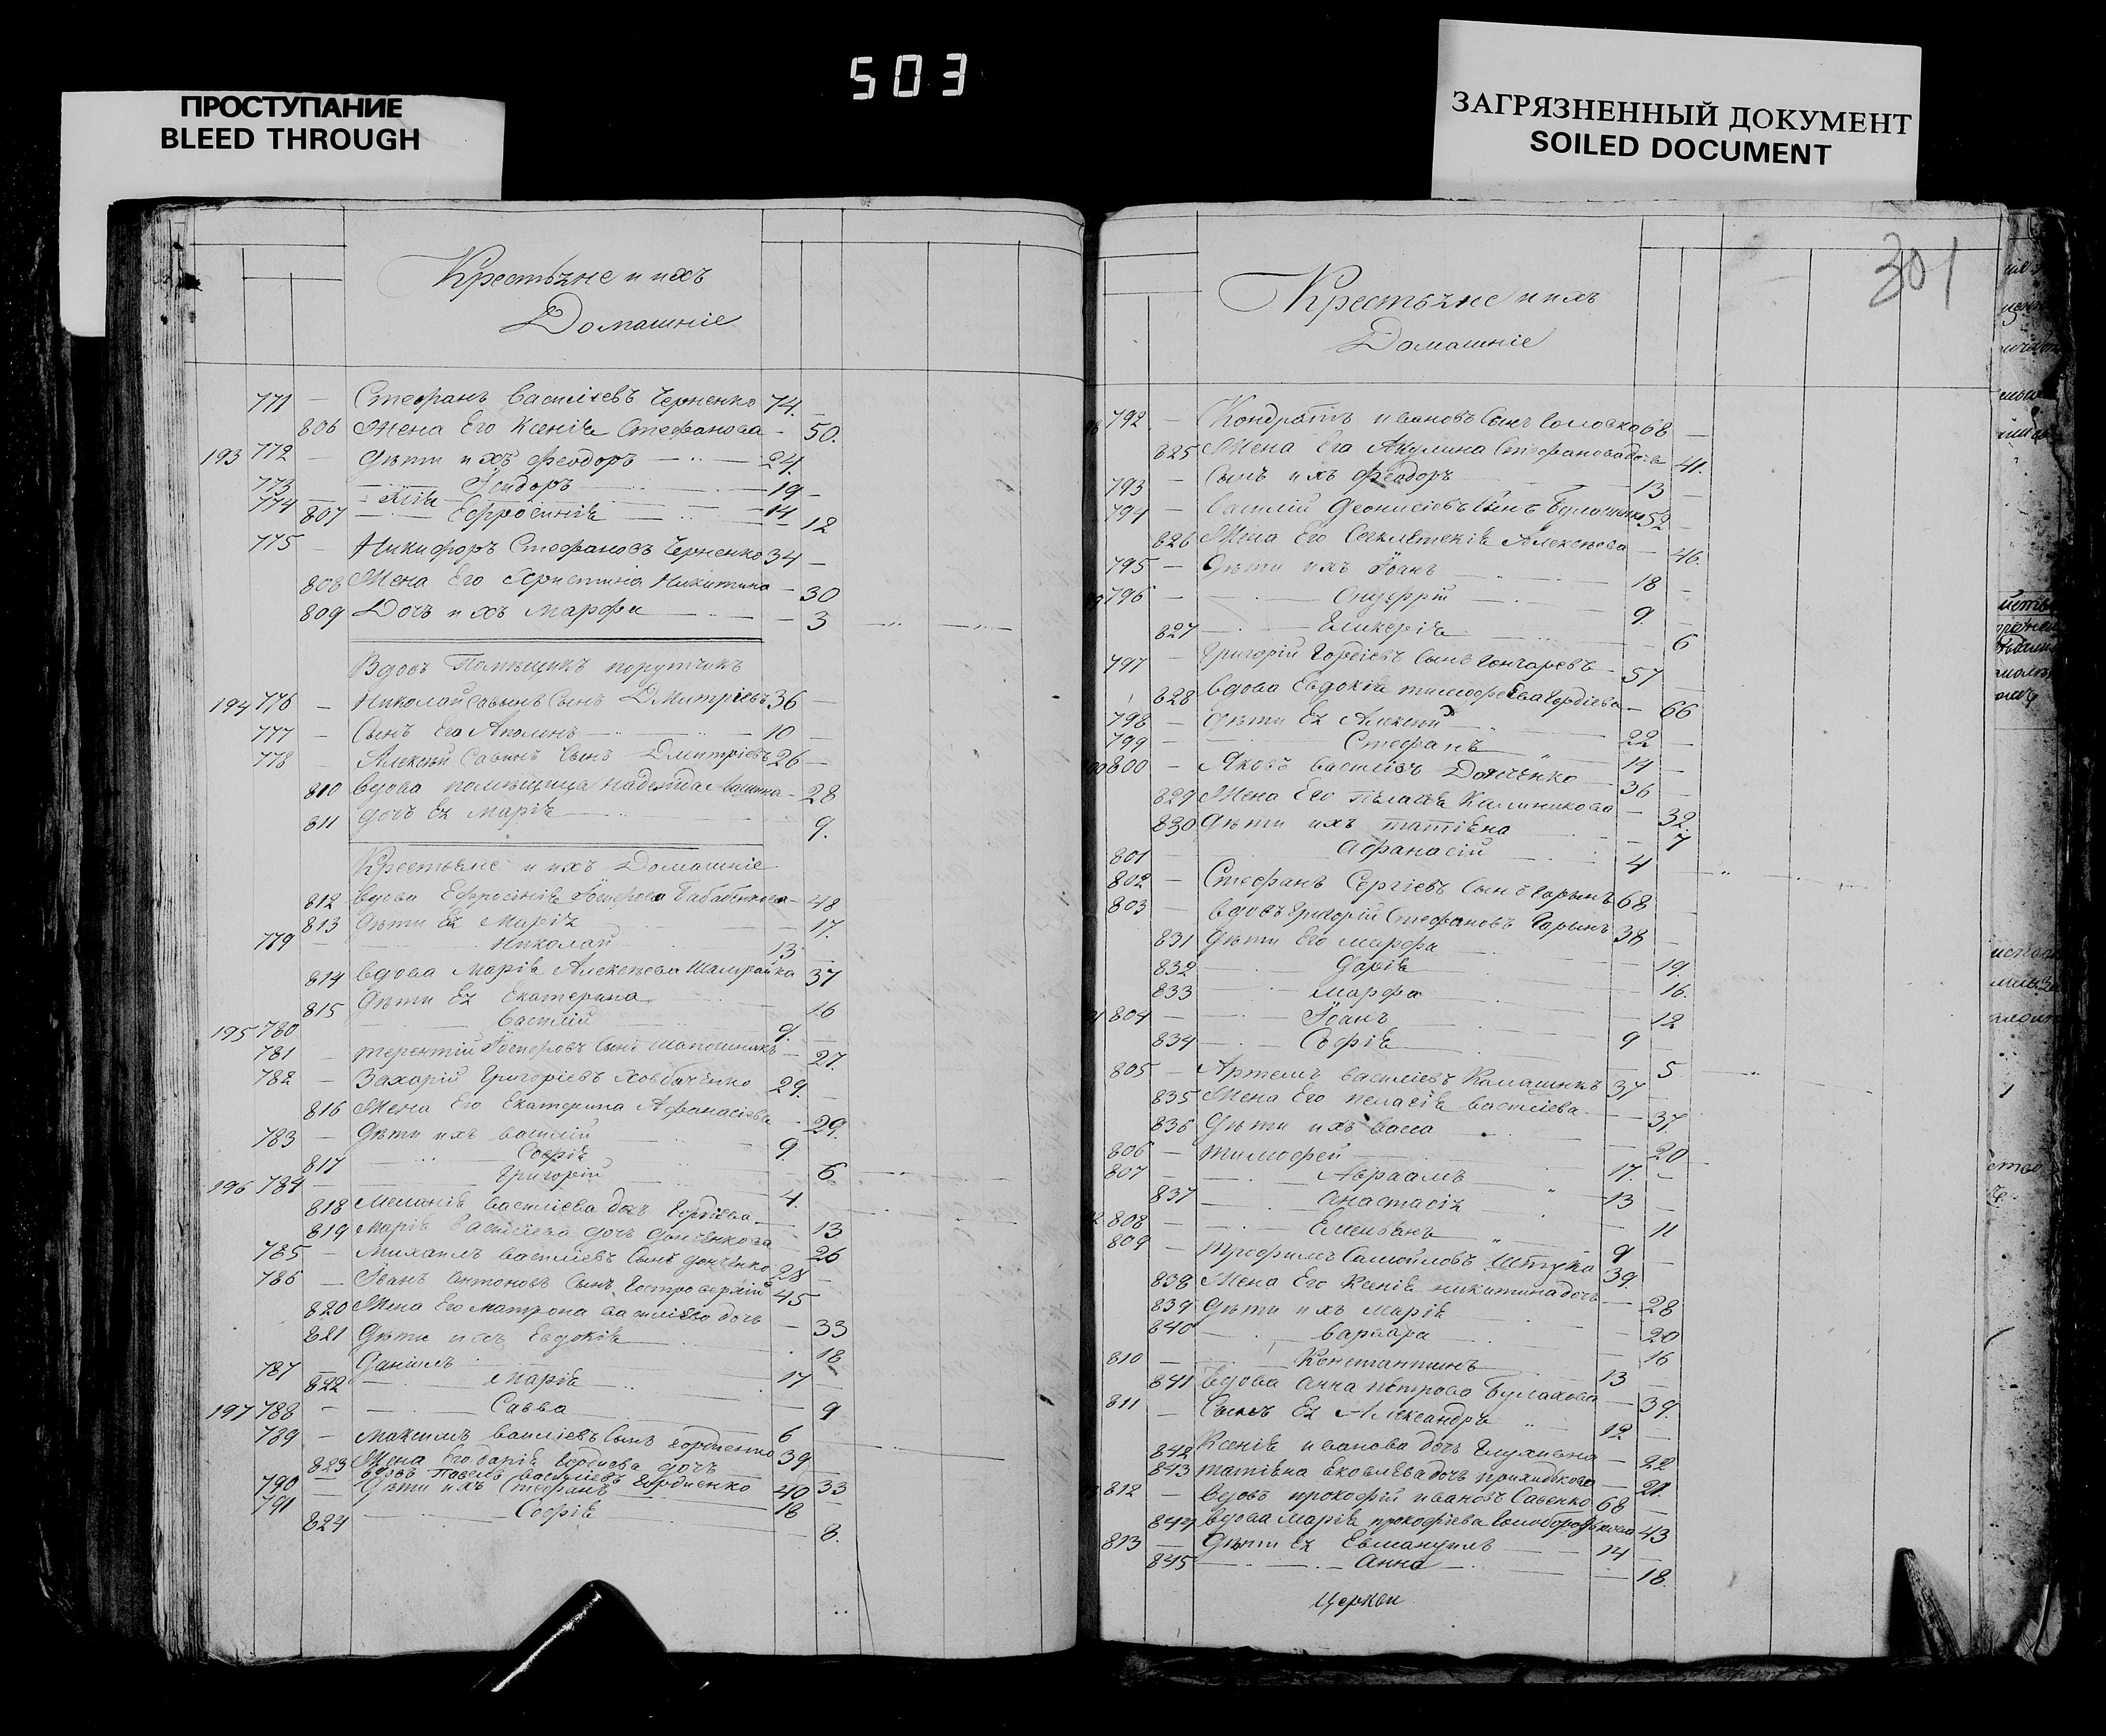 503
ПРОСТУПАНИЕ
BLEED THROUGH
ЗАГРЯЗНЕННЫЙ ДОКУМЕНТ
SOILED DOCUMENT
Крестьяне и ихъ
Домашніе
771 — Стефанъ Василіевъ Черненко 74. —
806 Жена Его Ксенія Стефанова — 50.
193 772 — Дѣти ихъ Феодоръ — 24.
773 — Ісидоръ — 19 —
774 — Илія — 14
807 — Ефросинія — 12
775 — Никифоръ Стефановъ Черненко 34 —
808 Жена Его Христина Никитина — 30
809 Дочь ихъ Марфа — 3
Вдовъ Помѣщикъ порутчикъ
194 776 — Николай Савинъ Сынъ Дмитріевъ 36 —
777 — Сынъ Его Аполонъ — 10 —
778 — Алексѣй Савинъ Сынъ Дмитріевъ 26 —
810 Вдова помѣщица Надежда — 28
811 дочь Ея Марія — 9.
Крестьяне и ихъ Домашніе
812 Вдова Ефросинія — 48
813 Дѣти Ея Марія — 17.
779 Николай 13
814 Вдова Марія Алексѣева 37
815 Дѣти Ея Екатерина — 16
195 780 Василій 9. —
781 — Терентій Сынъ — 27.
782 — Захарій Григоріевъ 29. —
816 Жена Его Екатерина Афанасіева — 29.
783 — Дѣти ихъ Василій 9.
817 — Софія — 6.
196 784 — Григорій 4.
818 Меланія Василіева дочь — 13
819 Марія Василіева дочь — 26
785 — Михаилъ Василіевъ Сынъ 28 —
786 — Іванъ Антоновъ Сынъ 45
820 Жена Его Матрона Василіева дочь — 33
821 Дѣти ихъ Евдокія — 18
787 — Даніилъ 17
822 — Марія — 9
197 788 — Савва 6
789 — Максимъ Сынъ Гордіенко 39
823 Жена Его Дарія дочь 33
790 — Вдовъ Павелъ Василіевъ Гордіенко 40 —
791 — Дѣти ихъ Стефанъ 18
824 — Софія — 8.
301
Крестьяне и ихъ
Домашніе
792 — Кондратъ Ивановъ Сынъ 68 —
825 Жена Его Акулина Стефанова дочь 41.
793 — Сынъ ихъ Феодоръ — 13 —
794 — Василій Деонисіевъ Сынъ 52 —
826 Жена Его Алексѣева — 46.
795 — Дѣти ихъ Іоанъ — 18 —
796 — Онуфрій — 9. —
827 — Гликерія — 6
797 — Григорій Гордіевъ Сынъ Гончаревъ — 57 —
828 Вдова Евдокія Тимофѣева — 66
798 — Дѣти Ея Алексѣй 22 —
799 — Стефанъ 14 —
800 — Яковъ Василіевъ 36 —
829 Жена Его Пелагія — 32.
830 Дѣти ихъ Татіяна — 7
801 — Афанасій 4
802 — Стефанъ Сергіевъ Сынъ Гарынъ 68
803 — Вдовъ Григорій Стефановъ Гарынъ 38 —
831 Дѣти Его Марфа — 19.
832 — Дарія — 16.
833 — Марфа — 12
804 — Іоанъ 9
834 — Софія — 5
805 — Артемъ Василіевъ 37
835 Жена Его Пелагія Василіева — 37
836 Дѣти ихъ Васса — 20
806 — Тимофей 17. —
807 — Авраамъ 13 —
837 — Анастасія — 11
808 — Емельянъ 9 —
809 — Трофимъ Самойловъ 39.
838 Жена Его Ксенія Никитина дочь — 28
839 Дѣти ихъ Марія — 20
840 — Варвара — 16
810 — Константинъ 13 —
841 Вдова Анна Петрова Булахова — 39.
811 — Сынъ Ея Александръ 12 —
842 Ксенія Иванова дочь — 22
843 Татіяна Яковлева дочь — 21.
812 — Вдовъ Прокофій Ивановъ Савенко 68 —
844 Вдова Марія Прокофіева 43
813 — Дѣти Ея 14 —
845 — Анна — 18.
Церкви